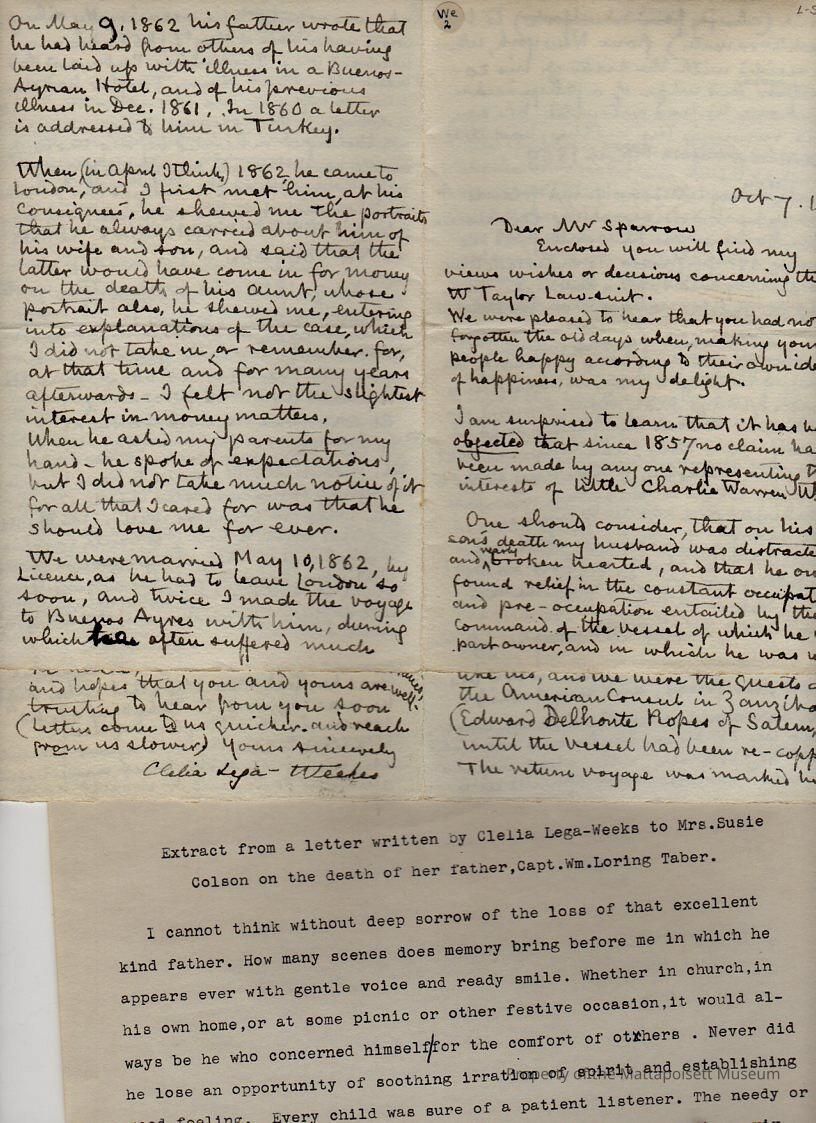 On May 9, 1862 his father wrote that
he had heard from others of his having
been laid up with illness in a Buenos-
Ayrian Hotel, and of his previous
illness in Dec. 1861. In 1860 a letter
is addressed to him in Turkey.
When (in April I think,) 1862, he came to
London, and I first met him, at his
consignees, he shewed me the portraits
that he always carried about him of
his wife and son, and said that the
latter would have come in for money
on the death of his aunt, whose
portrait also, he shewed me, entering
into explanations of the case, which
I did not take in, or remember. for,
at that time and for many years
afterwards - I felt not the slightest
interest in money matters.
When he asked my parents for my
hand - he spoke of expectations,
but I did not take much notice of it
for all that I cared for was that he
should love me for ever.
We were married May 10, 1862, by
Licence, as he had to leave London so
soon, and twice I made the voyage
to Buenos Ayres with him, during
which often suffered much
and hopes that you and yours are well.
trusting to hear from you soon
(letters come to us quicker. and reach
from us slower) Yours sincerely
Clelia Lega-Weekes
We
2
L-S
Oct 7. 1
Dear Mr Sparrow
Enclosed you will find my
views wishes or decisions concerning the
W Taylor Law-suit.
We were pleased to hear that you had no
forgotten the old days when, making you
people happy according to their own ide
of happiness, was my delight.
I am surprised to learn that it has b
objected that since 1857 no claim ha
been made by any one representing t
interests of little Charlie Warren W
One should consider, that on his
son's death my husband was distracte
and nearly broken hearted, and that he on
found relief in the constant occupat
and pre-occupation entailed by the
command of the vessel of which he
part owner, and in which he was w
like his, and we were the guests o
the American Consul in Zanziba
(Edward Delhonte Ropes of Salem,
until the vessel had been re-copp
The return voyage was marked b
Extract from a letter written by Clelia Lega-Weeks to Mrs.Susie
Colson on the death of her father,Capt.Wm.Loring Taber.
I cannot think without deep sorrow of the loss of that excellent
kind father. How many scenes does memory bring before me in which he
appears ever with gentle voice and ready smile. Whether in church,in
his own home,or at some picnic or other festive occasion,it would al-
ways be he who concerned himself/for the comfort of otxhers . Never did
he lose an opportunity of soothing irration of spirit and establishing
good feeling. Every child was sure of a patient listener. The needy or
Property of the Mattapoisett Museum